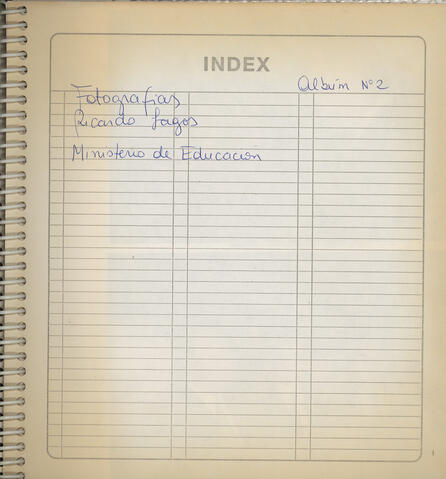 INDEX
Album N°2
Fotografias
Ricardo Lagos
Ministerio de Educacion